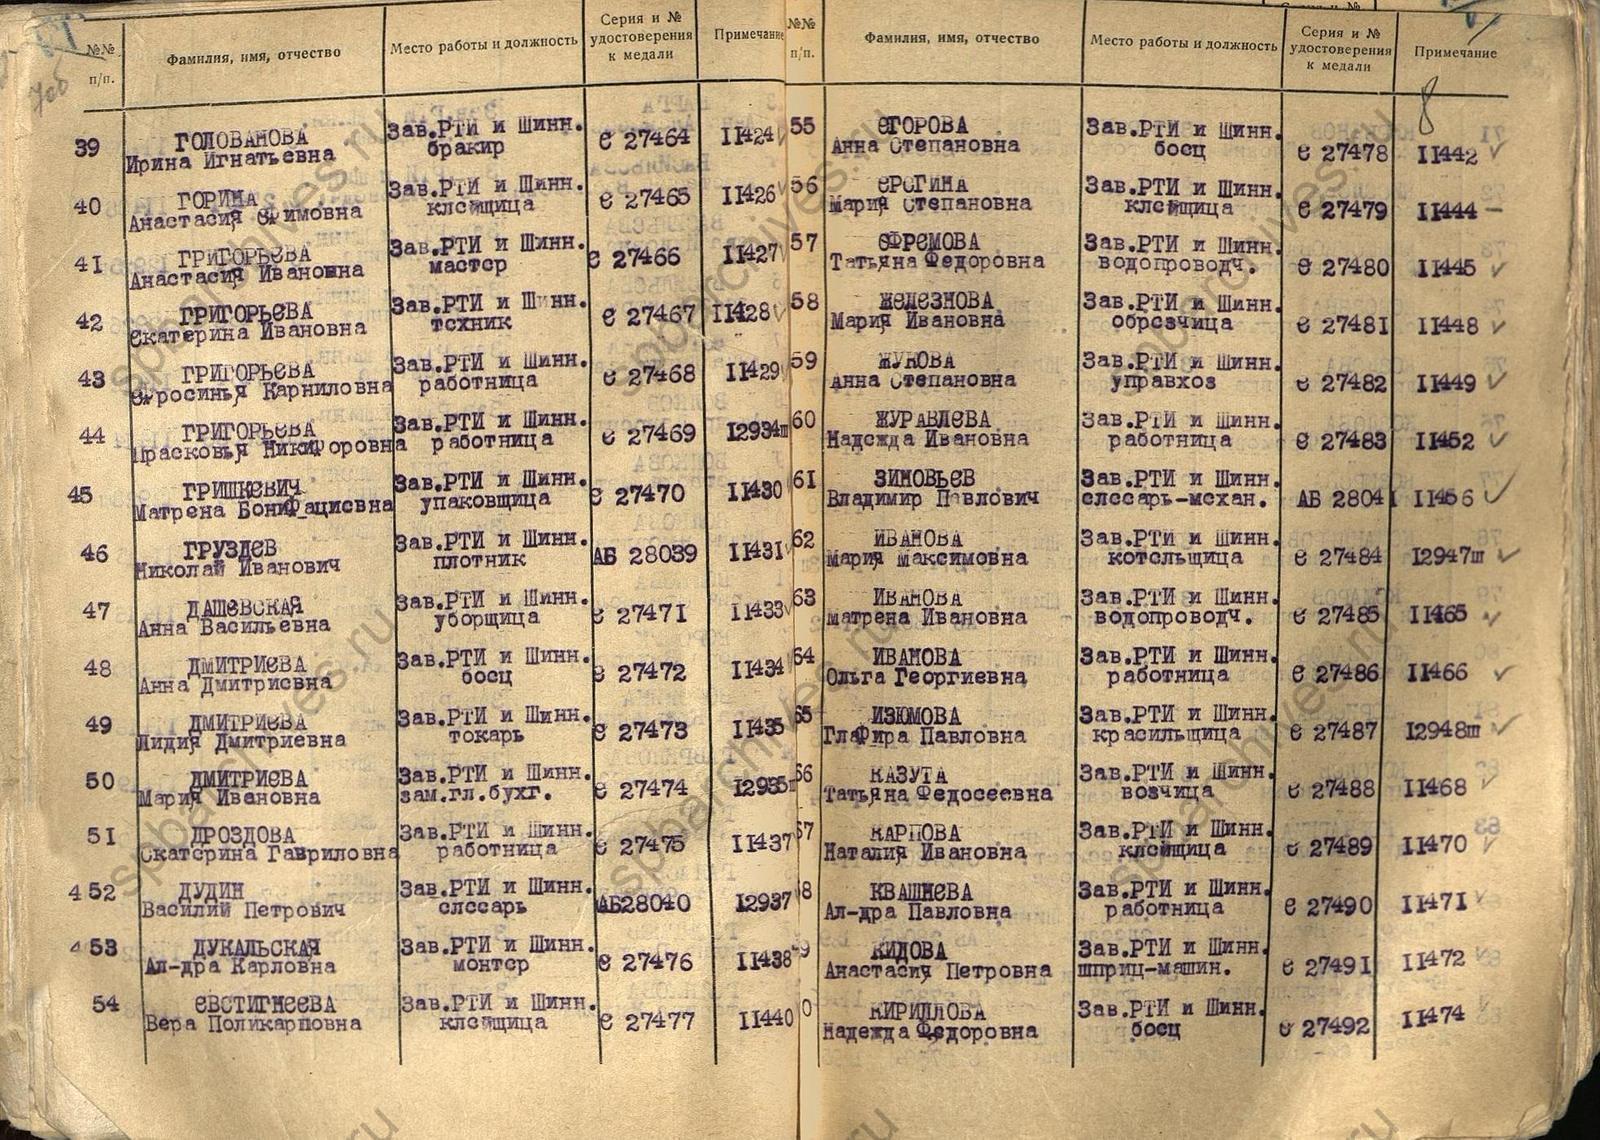 №№ п/п.
Фамилия, имя, отчество
Место работы и должность
Серия и № удостоверения к медали
Примечание
39 ГОЛОВАНОВА Зав.РТИ и Шинн. Є 27464 II424
Ирина Игнатьевна бракир
40 ГОРИНА Зав.РТИ и Шинн. Є 27465 II426
Анастасия Єфимовна клейщица
41 ГРИГОРЬЕВА Зав.РТИ и Шинн. Є 27466 II427
Анастасия Ивановна мастер
42 ГРИГОРЬЕВА Зав.РТИ и Шинн. Є 27467 II428
Єкатерина Ивановна техник
43 ГРИГОРЬЕВА Зав.РТИ и Шинн. Є 27468 II429
Єфросинья Карниловна работница
44 ГРИГОРЬЕВА Зав.РТИ и Шинн. Є 27469 12934ш
Прасковья Никифоровна работница
45 ГРИШКЕВИЧ Зав.РТИ и Шинн. Є 27470 II430
Матрена Бонифациевна упаковщица
46 ГРУЗДЕВ Зав.РТИ и Шинн. АБ 28039 II431
Николай Иванович плотник
47 ДАШЕВСКАЯ Зав.РТИ и Шинн. Є 27471 II433
Анна Васильевна уборщица
48 ДМИТРИЕВА Зав.РТИ и Шинн. Є 27472 II434
Анна Дмитриевна боец
49 ДМИТРИЕВА Зав.РТИ и Шинн. Є 27473 II435
Лидия Дмитриевна токарь
50 ДМИТРИЕВА Зав.РТИ и Шинн. Є 27474 12935ш
Мария Ивановна зам.гл.бухг.
51 ДРОЗДОВА Зав.РТИ и Шинн. Є 27475 II437
Єкатерина Гавриловна работница
52 ДУДИН Зав.РТИ и Шинн. АБ28040 12937
Василий Петрович слесарь
53 ДУКАЛЬСКАЯ Зав.РТИ и Шинн. Є 27476 II438
Ал-дра Карловна монтер
54 ЄВСТИГНЕЕВА Зав.РТИ и Шинн. Є 27477 II440
Вера Поликарповна клейщица
№№ п/п.
Фамилия, имя, отчество
Место работы и должность
Серия и № удостоверения к медали
Примечание
8
55 ЄГОРОВА Зав.РТИ и Шинн. Є 27478 II442
Анна Степановна боец
56 ЄРОГИНА Зав.РТИ и Шинн. Є 27479 II444
Мария Степановна клейщица
57 ЄФРЕМОВА Зав.РТИ и Шинн. Є 27480 II445
Татьяна Федоровна водопроводч.
58 ЖЕЛЕЗНОВА Зав.РТИ и Шинн. Є 27481 II448
Мария Ивановна обрезчица
59 ЖУКОВА Зав.РТИ и Шинн. Є 27482 II449
Анна Степановна управхоз
60 ЖУРАВЛЕВА Зав.РТИ и Шинн. Є 27483 II452
Надежда Ивановна работница
61 ЗИНОВЬЕВ Зав.РТИ и Шинн. АБ 28041 II456
Владимир Павлович слесарь-механ.
62 ИВАНОВА Зав.РТИ и Шинн. Є 27484 12947ш
Мария Максимовна котельщица
63 ИВАНОВА Зав.РТИ и Шинн. Є 27485 II465
Матрена Ивановна водопроводч.
64 ИВАНОВА Зав.РТИ и Шинн. Є 27486 II466
Ольга Георгиевна работница
65 ИЗЮМОВА Зав.РТИ и Шинн. Є 27487 12948ш
Глафира Павловна красильщица
66 КАЗУТА Зав.РТИ и Шинн. Є 27488 II468
Татьяна Федосеевна возчица
67 КАРПОВА Зав.РТИ и Шинн. Є 27489 II470
Наталия Ивановна клейщица
8 КВАШНЕВА Зав.РТИ и Шинн. Є 27490 II471
Ал-дра Павловна работница
9 КИДОВА Зав.РТИ и Шинн. Є 27491 II472
Анастасия Петровна шприц-машин.
0 КИРИЛЛОВА Зав.РТИ и Шинн. Є 27492 II474
Надежда Федоровна боец
spbarchives.ru